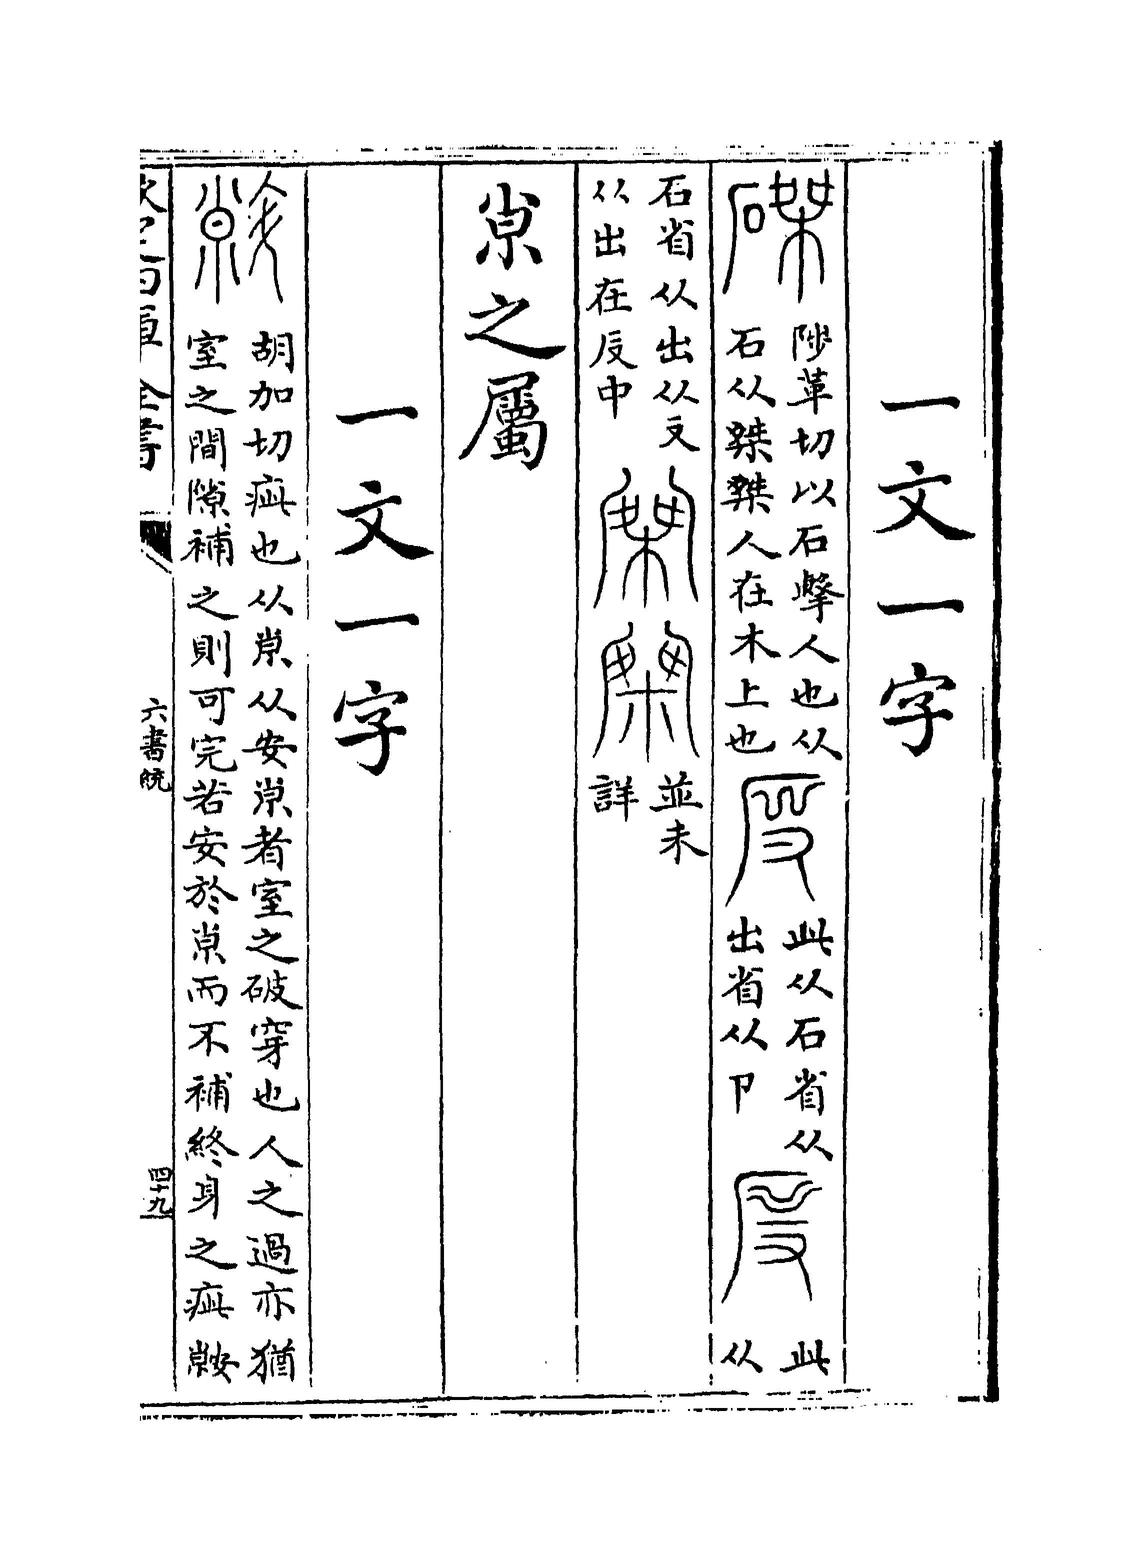 一文一字
磔
陟革切以石擊人也从
石从桀桀人在木上也
此从石省从
出省从卩
此
从
石省从出从又
从出在𠬝中
並未
詳
𡭴之屬
一文一字
胡加切疵也从𡭴从安𡭴者室之破穿也人之過亦猶
室之間隙補之則可完若安於𡭴而不補終身之疵
欽定四庫全書
六書統
四十九